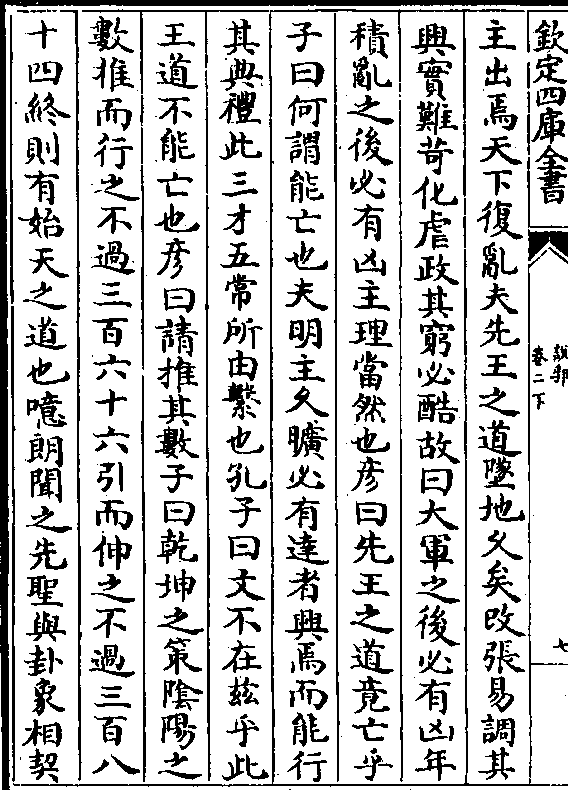 欽定四庫全書
說郛
卷二下
七
主出焉天下復亂夫先王之道墜地久矣改張易調其
興實難苛化虐政其窮必酷故曰大軍之後必有凶年
積亂之後必有凶主理當然也彦曰先王之道竟亡乎
子曰何謂能亡也夫明主久曠必有達者興焉而能行
其典禮此三才五常所由繫也孔子曰文不在兹乎此
王道不能亡也彦曰請推其數子曰乾坤之策陰陽之
數推而行之不過三百六十六引而伸之不過三百八
十四終則有始天之道也噫朗聞之先聖與卦象相契